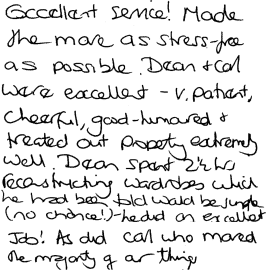 Excellent service! Made
the move as stress-free
as possible. Dean & Cal
were excellent - v. patient,
cheerful, good-humoured &
treated our property extremely
well. Dean spent 2½ hrs
reconstructing wardrobes which
he had been told would be
(no chance!) - he did an excellent
Job! As did Cal who moved
the majority of our things